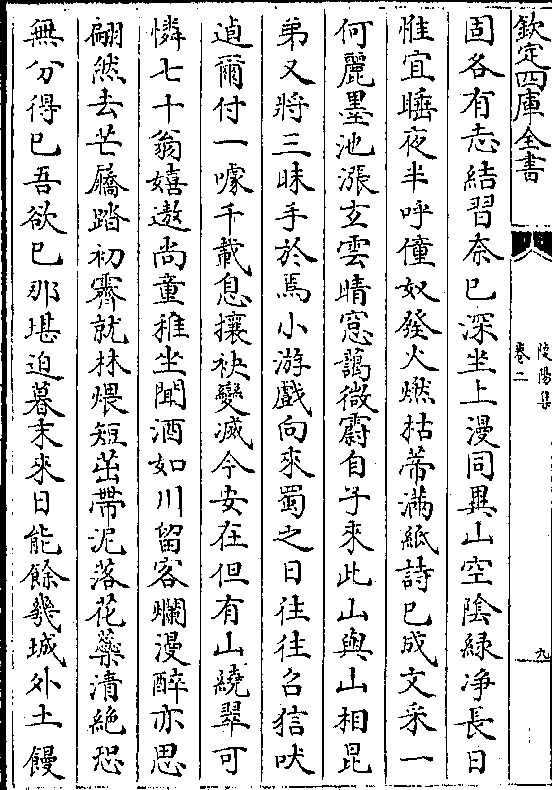 欽定四庫全書
陵陽集
卷二
九
固各有志結習奈已深坐上漫同異山空陰緑净長日
惟宜睡夜半呼僮奴發火燃枯蔕滿紙詩已成文采一
何麗墨池漲玄雲晴窓靄微霨自子來此山與山相昆
弟又將三昧手於焉小游戲向來蜀之日往往召狺吠
逌爾付一噱千載息攘袂變滅今安在但有山繞翠可
憐七十翁嬉遨尚童稚坐聞酒如川留客爛漫醉亦思
翩然去芒屩踏初霽就林煨短茁帶泥落花蘂清絶恐
無分得已吾欲已那堪迫暮末來日能餘幾城外土饅